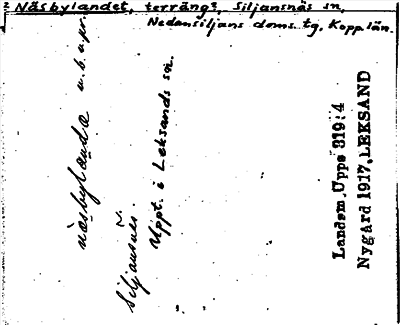 2 Näsbylandet, terräng?, Siljansnäs sn,
Nedansiljans doms. tg, Kopp. län.
näsbylanda u.b.u.pr.
Siljansnäs.
Uppt. i Leksands sn.
Landsm. Upps 319:4
Nygård 1917, LEKSAND